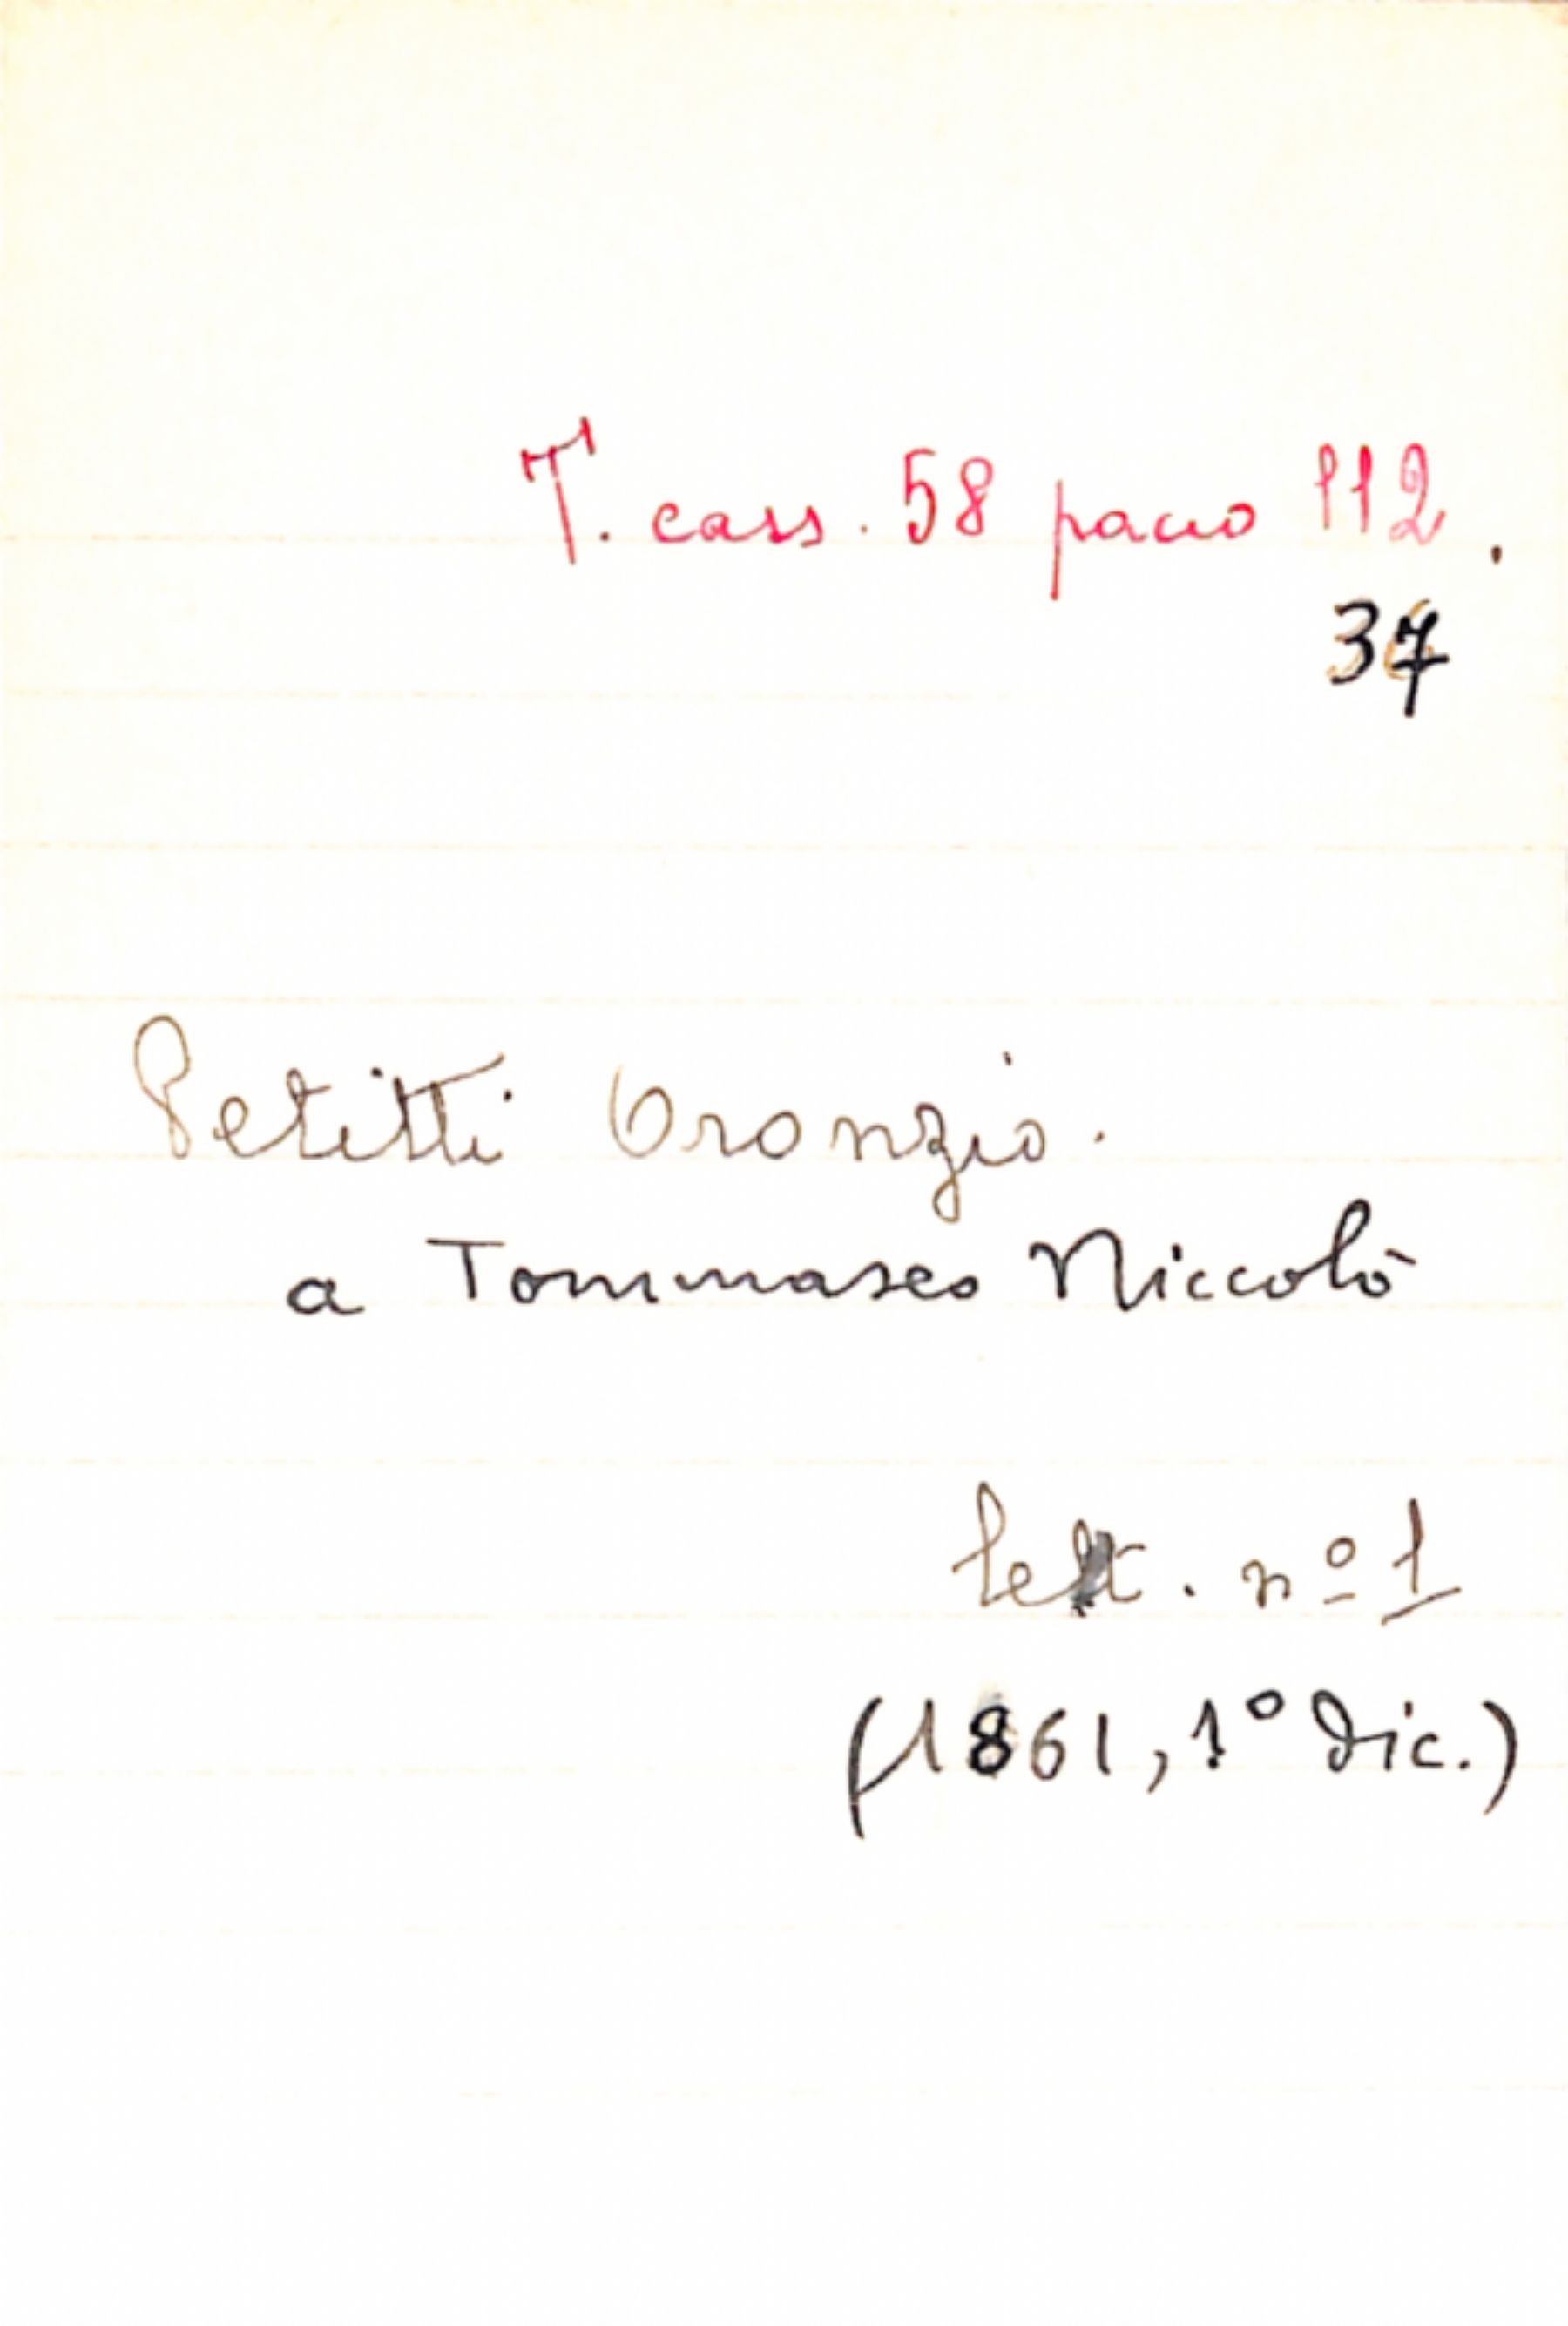 T. cass. 58 pacco 112.
37
Petitti Oronzio.
a Tommaseo Niccolò
lett. nº 1
(1861, 1º dic.)